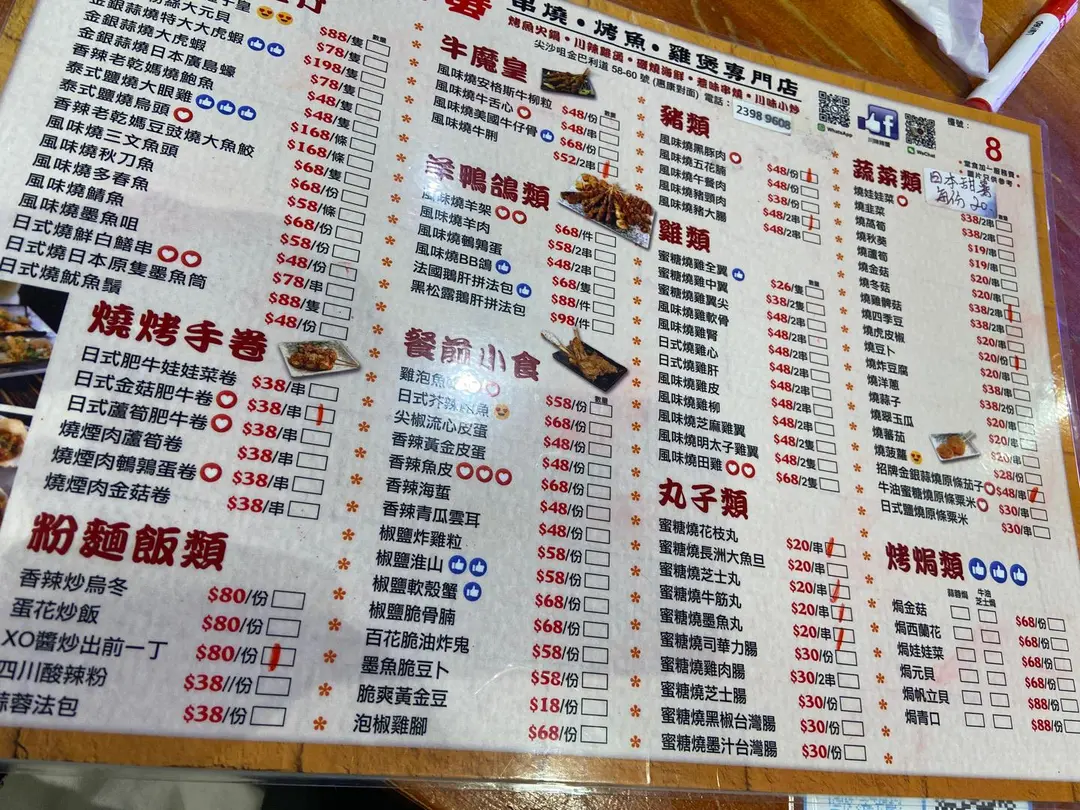 串燒・烤魚・雞煲專門店
烤魚火鍋・川辣雞煲・碳燒海鮮・惹味串燒・川味小炒
尖沙咀金巴利道 58-60 號 (惠康對面) 電話：2398 9608
WhatsApp
WeChat
檯號：8
金銀蒜燒特大大虎蝦
金銀蒜燒大虎蝦
金銀蒜燒日本廣島蠔
香辣老乾媽燒鮑魚
泰式鹽燒大眼雞
泰式鹽燒烏頭
香辣老乾媽豆豉燒大魚餃
風味燒三文魚頭
風味燒秋刀魚
風味燒多春魚
風味燒鯖魚
風味燒墨魚咀
日式燒鮮白鱔串
日式燒日本原隻墨魚筒
日式燒魷魚鬚
數量
$88/隻
$78/隻
$198/隻
$78/隻
$48/隻
$48/隻
$168/條
$168/條
$68/份
$68/份
$58/條
$68/份
$58/份
$48/份
$78/串
$88/隻
$48/份
燒烤手卷
日式肥牛娃娃菜卷 $38/串
日式金菇肥牛卷 $38/串
日式蘆筍肥牛卷 $38/串
燒煙肉蘆筍卷 $38/串
燒煙肉鵪鶉蛋卷 $38/串
燒煙肉金菇卷 $38/串
粉麵飯類
香辣炒烏冬 $80/份
蛋花炒飯 $80/份
XO醬炒出前一丁 $80/份
四川酸辣粉 $38//份
蒜蓉法包 $38/份
牛魔皇
數量
風味燒安格斯牛柳粒 $48/份
風味燒牛舌心 $48/串
風味燒美國牛仔骨 $68/份
風味燒牛脷 $52/2串
羊鴨鴿類
風味燒羊架 $68/件
風味燒羊肉 $58/2串
風味燒鵪鶉蛋 $48/2串
風味燒BB鴿 $68/隻
法國鵝肝拼法包 $88/件
黑松露鵝肝拼法包 $98/件
餐前小食
數量
雞泡魚 $58/份
日式芥辣 魚 $68/份
尖椒流心皮蛋 $48/份
香辣黃金皮蛋 $48/份
香辣魚皮 $48/份
香辣海蜇 $48/份
香辣青瓜雲耳 $48/份
椒鹽炸雞粒 $58/份
椒鹽淮山 $58/份
椒鹽軟殼蟹 $68/份
椒鹽脆骨腩 $68/份
百花脆油炸鬼 $58/份
墨魚脆豆卜 $58/份
脆爽黃金豆 $18/份
泡椒雞腳 $68/份
豬類
風味燒黑豚肉 $48/份
風味燒五花腩 $48/份
風味燒午餐肉 $38/份
風味燒豬頸肉 $48/2串
風味燒豬大腸 $48/2串
雞類
數量
蜜糖燒雞全翼 $26/隻
蜜糖燒雞中翼 $38/2隻
蜜糖燒雞翼尖 $48/2串
風味燒雞軟骨 $48/2串
風味燒雞腎 $48/2串
日式燒雞心 $48/2串
日式燒雞肝 $48/2串
風味燒雞皮 $48/2串
風味燒雞柳 $48/2串
風味燒芝麻雞翼 $48/2隻
風味燒明太子雞翼 $48/2隻
風味燒田雞 $68/2隻
丸子類
蜜糖燒花枝丸 $20/串
蜜糖燒長洲大魚旦 $20/串
蜜糖燒芝士丸 $20/串
蜜糖燒牛筋丸 $20/串
蜜糖燒墨魚丸 $20/串
蜜糖燒司華力腸 $30/份
蜜糖燒雞肉腸 $30/2串
蜜糖燒芝士腸 $30/份
蜜糖燒黑椒台灣腸 $30/份
蜜糖燒墨汁台灣腸 $30/份
・堂食加一服務費・
・圖片只供參考・
蔬菜類
日本甜薯
每份 20.-
燒娃娃菜
燒韭菜
燒萵筍
燒秋葵
燒蘆筍
燒金菇
燒冬菇
燒雞髀菇
燒四季豆
燒虎皮椒
燒豆卜
燒炸豆腐
燒洋蔥
燒蒜子
燒翠玉瓜
燒蕃茄
燒菠蘿
招牌金銀蒜燒原條茄子
牛油蜜糖燒原條粟米
日式鹽燒原條粟米
$38/2串
$38/2串
$19/串
$19/串
$20/串
$20/串
$38/2串
$38/2串
$20/串
$20/份
$20/串
$38/串
$38/2份
$20/串
$20/串
$20/串
$28/份
$48/串
$30/串
$30/串
烤焗類
蒜蓉焗
牛油芝士焗
焗金菇 $68/份
焗西蘭花 $68/份
焗娃娃菜 $68/份
焗元貝 $68/份
焗帆立貝 $88/份
焗青口 $88/份